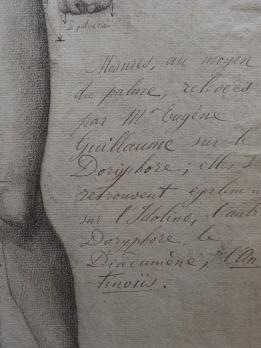 le palme
Mesures, au moyen
du palme, relevées
par Mr Eugène
Guillaume sur le
Doryphore; elles
retrouvent
sur l'Idolino, l'autre
Doryphore le
Diadumène, l'An
tinoüs.